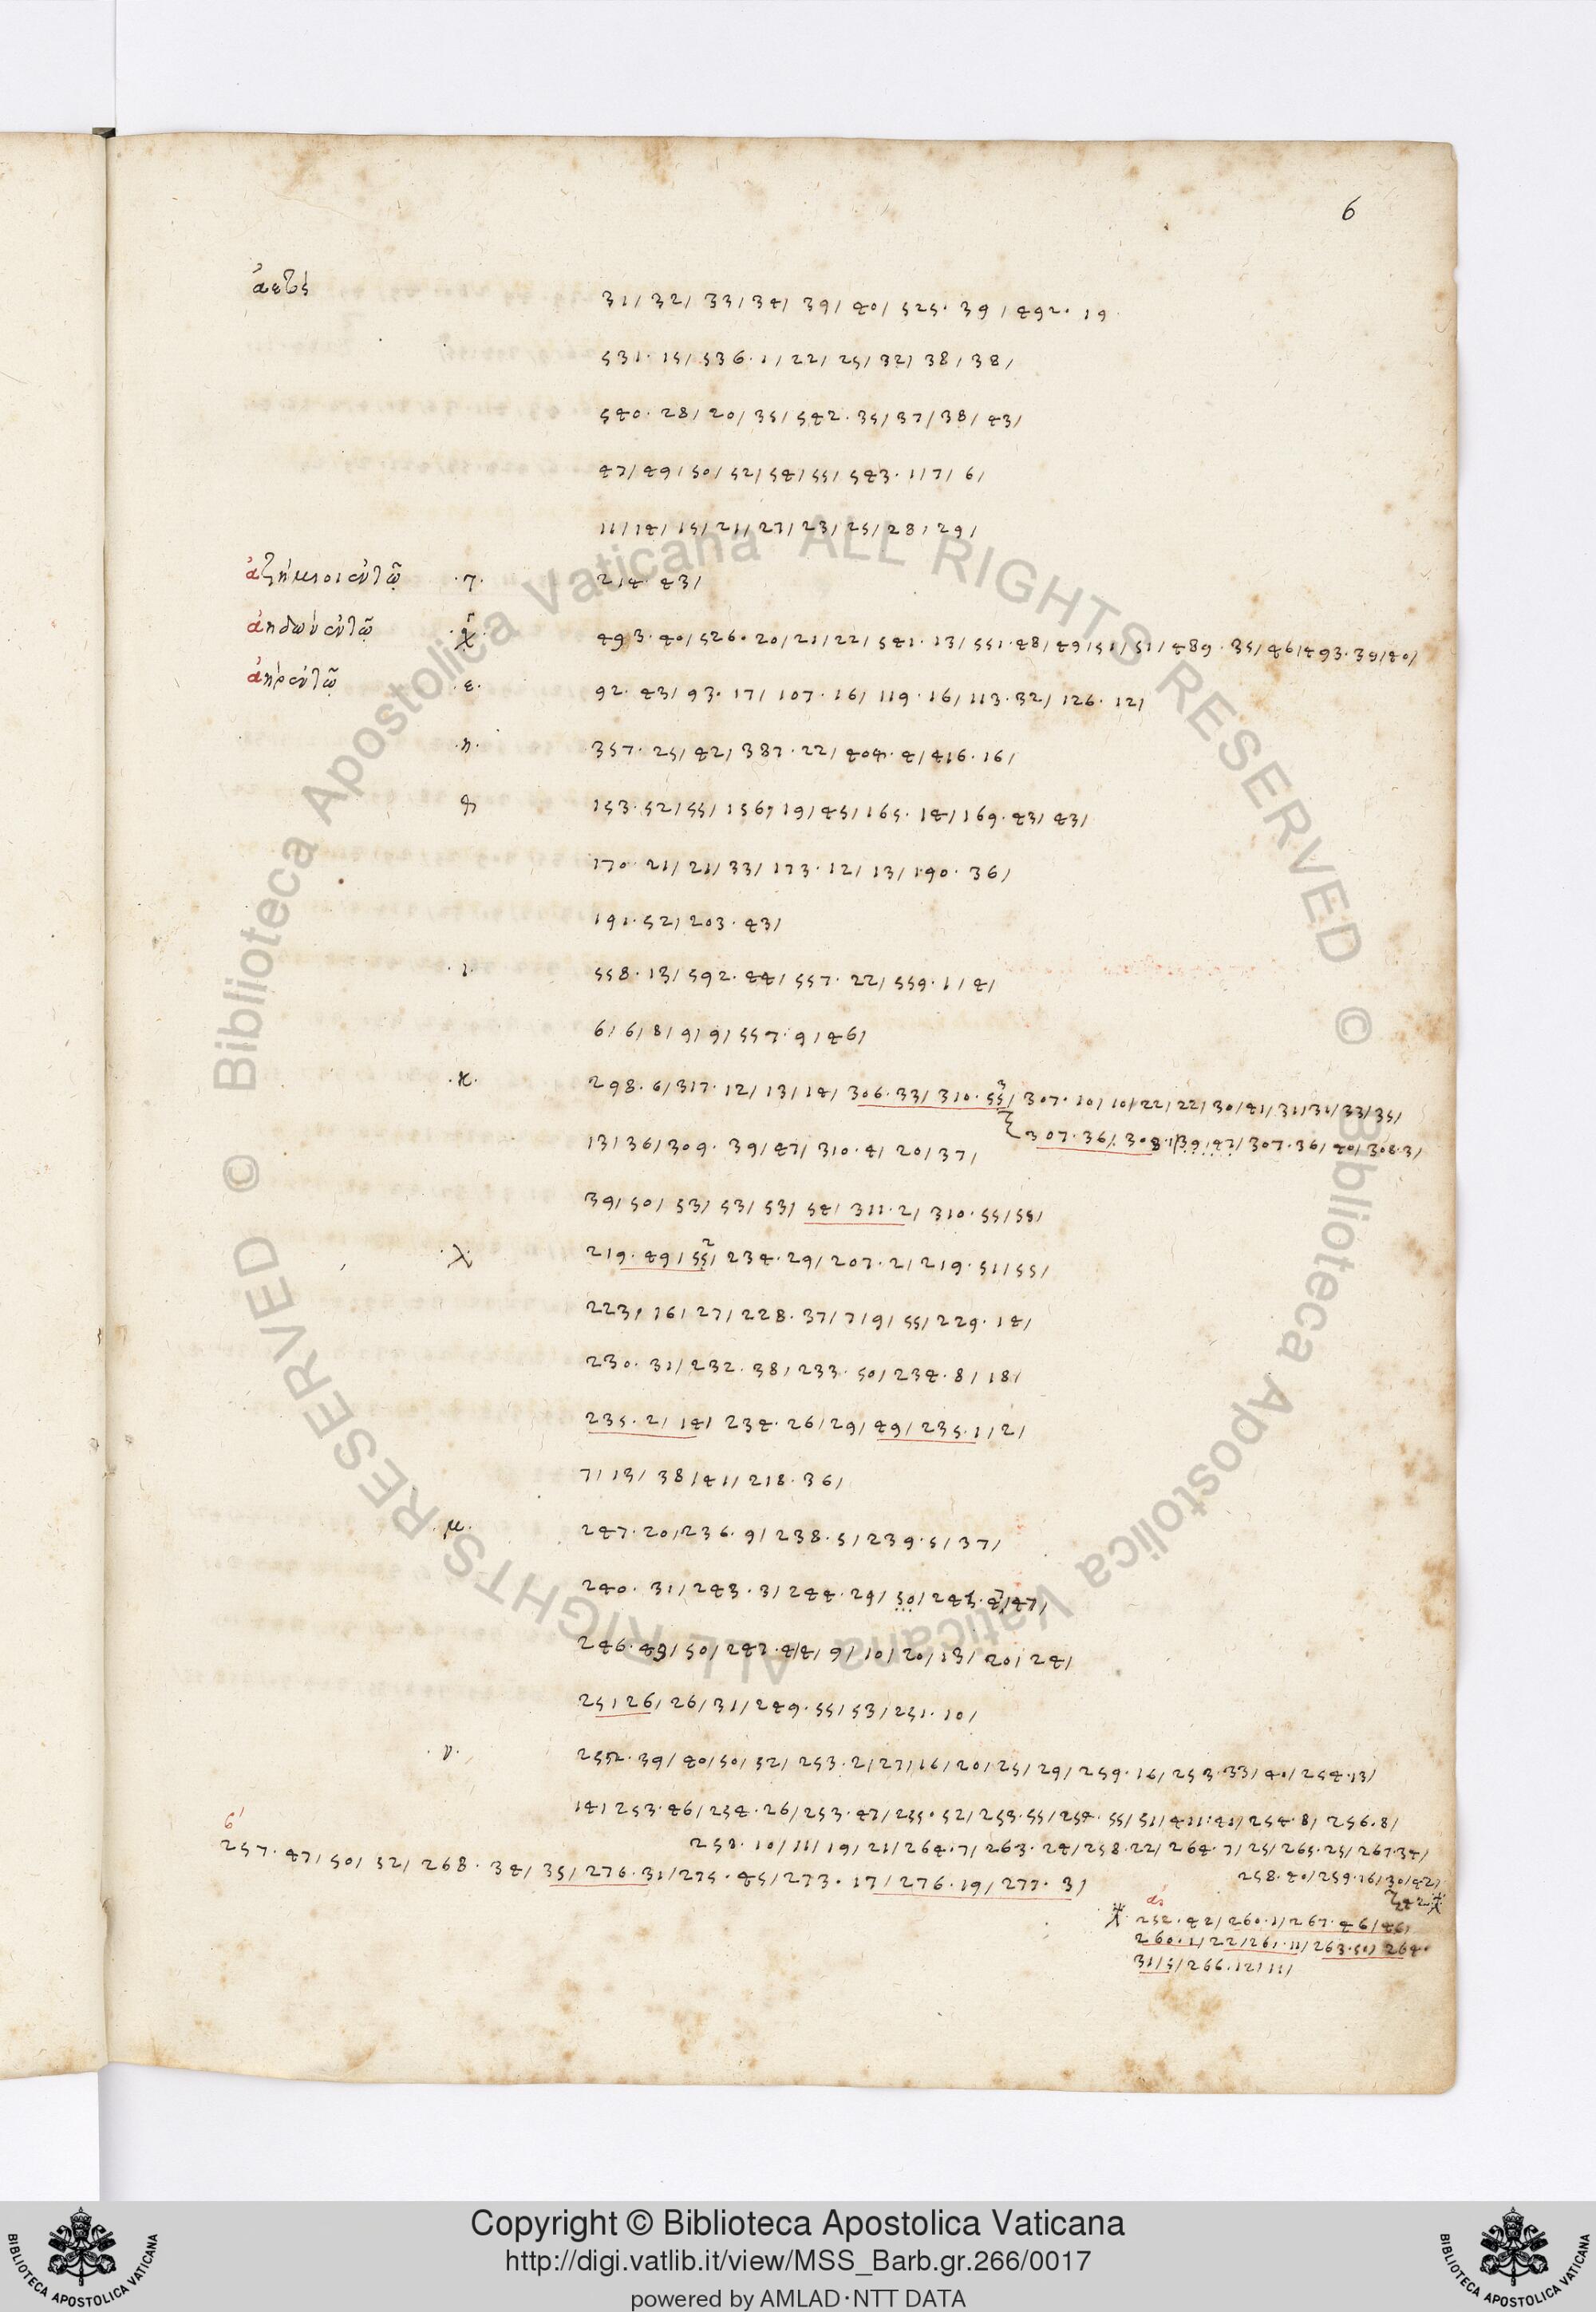 6
ἀετὸς 31/ 32/ 33/ 34/ 39/ 40/ 525. 39/ 492. 19
531. 15/ 536. 1/ 22/ 25/ 32/ 38/ 38/
540. 28/ 20/ 35/ 542. 35/ 37/ 38/ 43/
47/ 49/ 50/ 52/ 54/ 55/ 543. 1/ 7/ 6/
11/ 14/ 15/ 21/ 27/ 23/ 25/ 28/ 29/
214. 43/
493. 40/ 526. 20/ 21/ 22/ 541. 13/ 551. 48/ 49/ 51/ 51/ 489. 35/ 46/ 493. 39/ 40/
.ε. 92. 43/ 93. 17/ 107. 16/ 119. 16/ 113. 32/ 126. 12/
.η. 357. 25/ 42/ 387. 22/ 404. 4/ 416. 16/
153. 52/ 55/ 156, 19/ 45/ 165. 14/ 169. 43/ 43/
170. 21/ 21/ 33/ 173. 12/ 13/ 190. 36/
191. 52/ 203. 43/
.ι. 558. 13/ 592. 44/ 557. 22/ 559. 1/ 4/
6/ 6/ 8/ 9/ 9/ 557. 9/ 46/
.κ. 298. 6/ 317. 12/ 13/ 14/ 306. 33/ 310. 55/ 307. 10/ 10/ 22/ 22/ 30/ 41/ 31/ 31/ 33/ 35/
307. 36/ 308. 39/ 47/ 307. 36/ 40/ 308. 3/
13/ 36/ 309. 39/ 47/ 310. 4/ 20/ 37/
39/ 50/ 53/ 53/ 53/ 54/ 311. 2/ 310. 55/ 55/
.λ. 219. 49/ 55/ 234. 29/ 207. 2/ 219. 51/ 55/
223, 16/ 27/ 228. 37/ 7/ 9/ 55/ 229. 14/
230. 31/ 232. 38/ 233. 50/ 234. 8/ 18/
235. 2/ 14/ 234. 26/ 29/ 49/ 235. 1/ 2/
7/ 13/ 38/ 41/ 218. 36/
.μ. 247. 20/ 236. 9/ 238. 5/ 239. 5/ 37/
240. 31/ 243. 3/ 244. 29/ 50/ 245. 47/
246. 49/ 50/ 247. 4/ 4/ 9/ 10/ 20/ 13/ 20/ 24/
25/ 26/ 26/ 31/ 249. 55/ 53/ 251. 10/
.ν. 252. 39/ 40/ 50/ 52/ 253. 2/ 27/ 16/ 20/ 25/ 29/ 259. 16/ 253. 33/ 40/ 254. 13/
14/ 253. 46/ 254. 26/ 253. 47/ 255. 52/ 253. 55/ 254. 55/ 51/ 254. 8/ 256. 8/
258. 10/ 11/ 19/ 21/ 264. 7/ 263. 24/ 258. 22/ 264. 7/ 25/ 265. 25/ 267. 34/
257. 47/ 50/ 52/ 268. 34/ 35/ 276. 31/ 275. 45/ 273. 17/ 276. 19/ 277. 3/
258. 40/ 259. 16/ 30/ 42/
252. 42/ 260. 1/ 267. 46/ 46/
260. 1/ 22/ 261. 11/ 263. 50/ 264.
31/ 5/ 266. 12/ 11/
© Biblioteca Apostolica Vaticana ALL RIGHTS RESERVED © Biblioteca Apostolica Vaticana ALL RIGHTS RESERVED
Copyright © Biblioteca Apostolica Vaticana
http://digi.vatlib.it/view/MSS_Barb.gr.266/0017
powered by AMLAD·NTT DATA
BIBLIOTECA APOSTOLICA VATICANA
BIBLIOTECA APOSTOLICA VATICANA